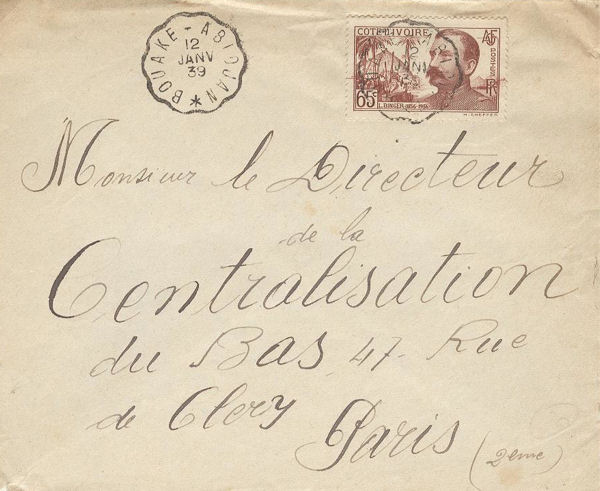 BOUAKE - ABIDJAN *
12
JANV
39
COTE D'IVOIRE
AOF
POSTES
RF
65c
L. BINGER 1856-1936
H. CHEFFER
12
JANV
Monsieur le Directeur
de la
Centralisation
du Bas, 47. Rue
de Clery
Paris
(2eme)